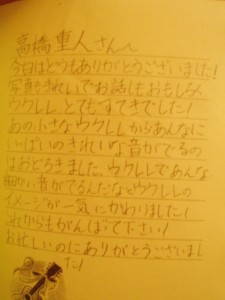 高橋重人さんへ
今日はどうもありがとうございました!
写真もきれいでお話しもおもしろく
ウクレレ とてもすてきでした!
あの小さなウクレレからあんなに
いっぱいのきれいな音がでるの
はおどろきました。ウクレレであんな
細かい音がでるんだなとウクレレの
イメージが一気にかわりました!
これからもがんばって下さい!
お忙しいのにありがとうございまし
た!